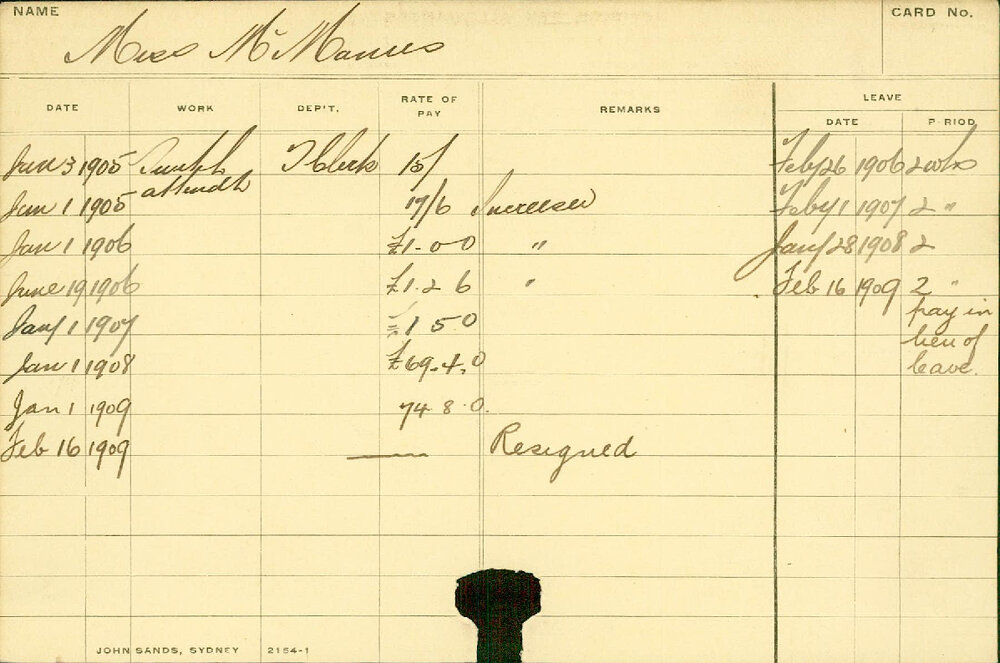 NAME
CARD No.
Miss McManus
DATE WORK DEP'T. RATE OF PAY REMARKS LEAVE
DATE PERIOD
3 1905 15/ Feby 26 1906 2 wks
attendt
Jan 1 1905 17/6 Increased Feby 1 1907 2 "
Jan 1 1906 £1-0-0 " Jany 28 1908 2
June 19 1906 £1-2 6 " Feb 16 1909 2 "
Jany 1 1907 1 5 0 pay in
lieu of
Jan 1 1908 £69-4.0 leave.
Jan 1 1909 74 8.0.
Feb 16 1909 — Resigned
JOHN SANDS, SYDNEY 2154-1